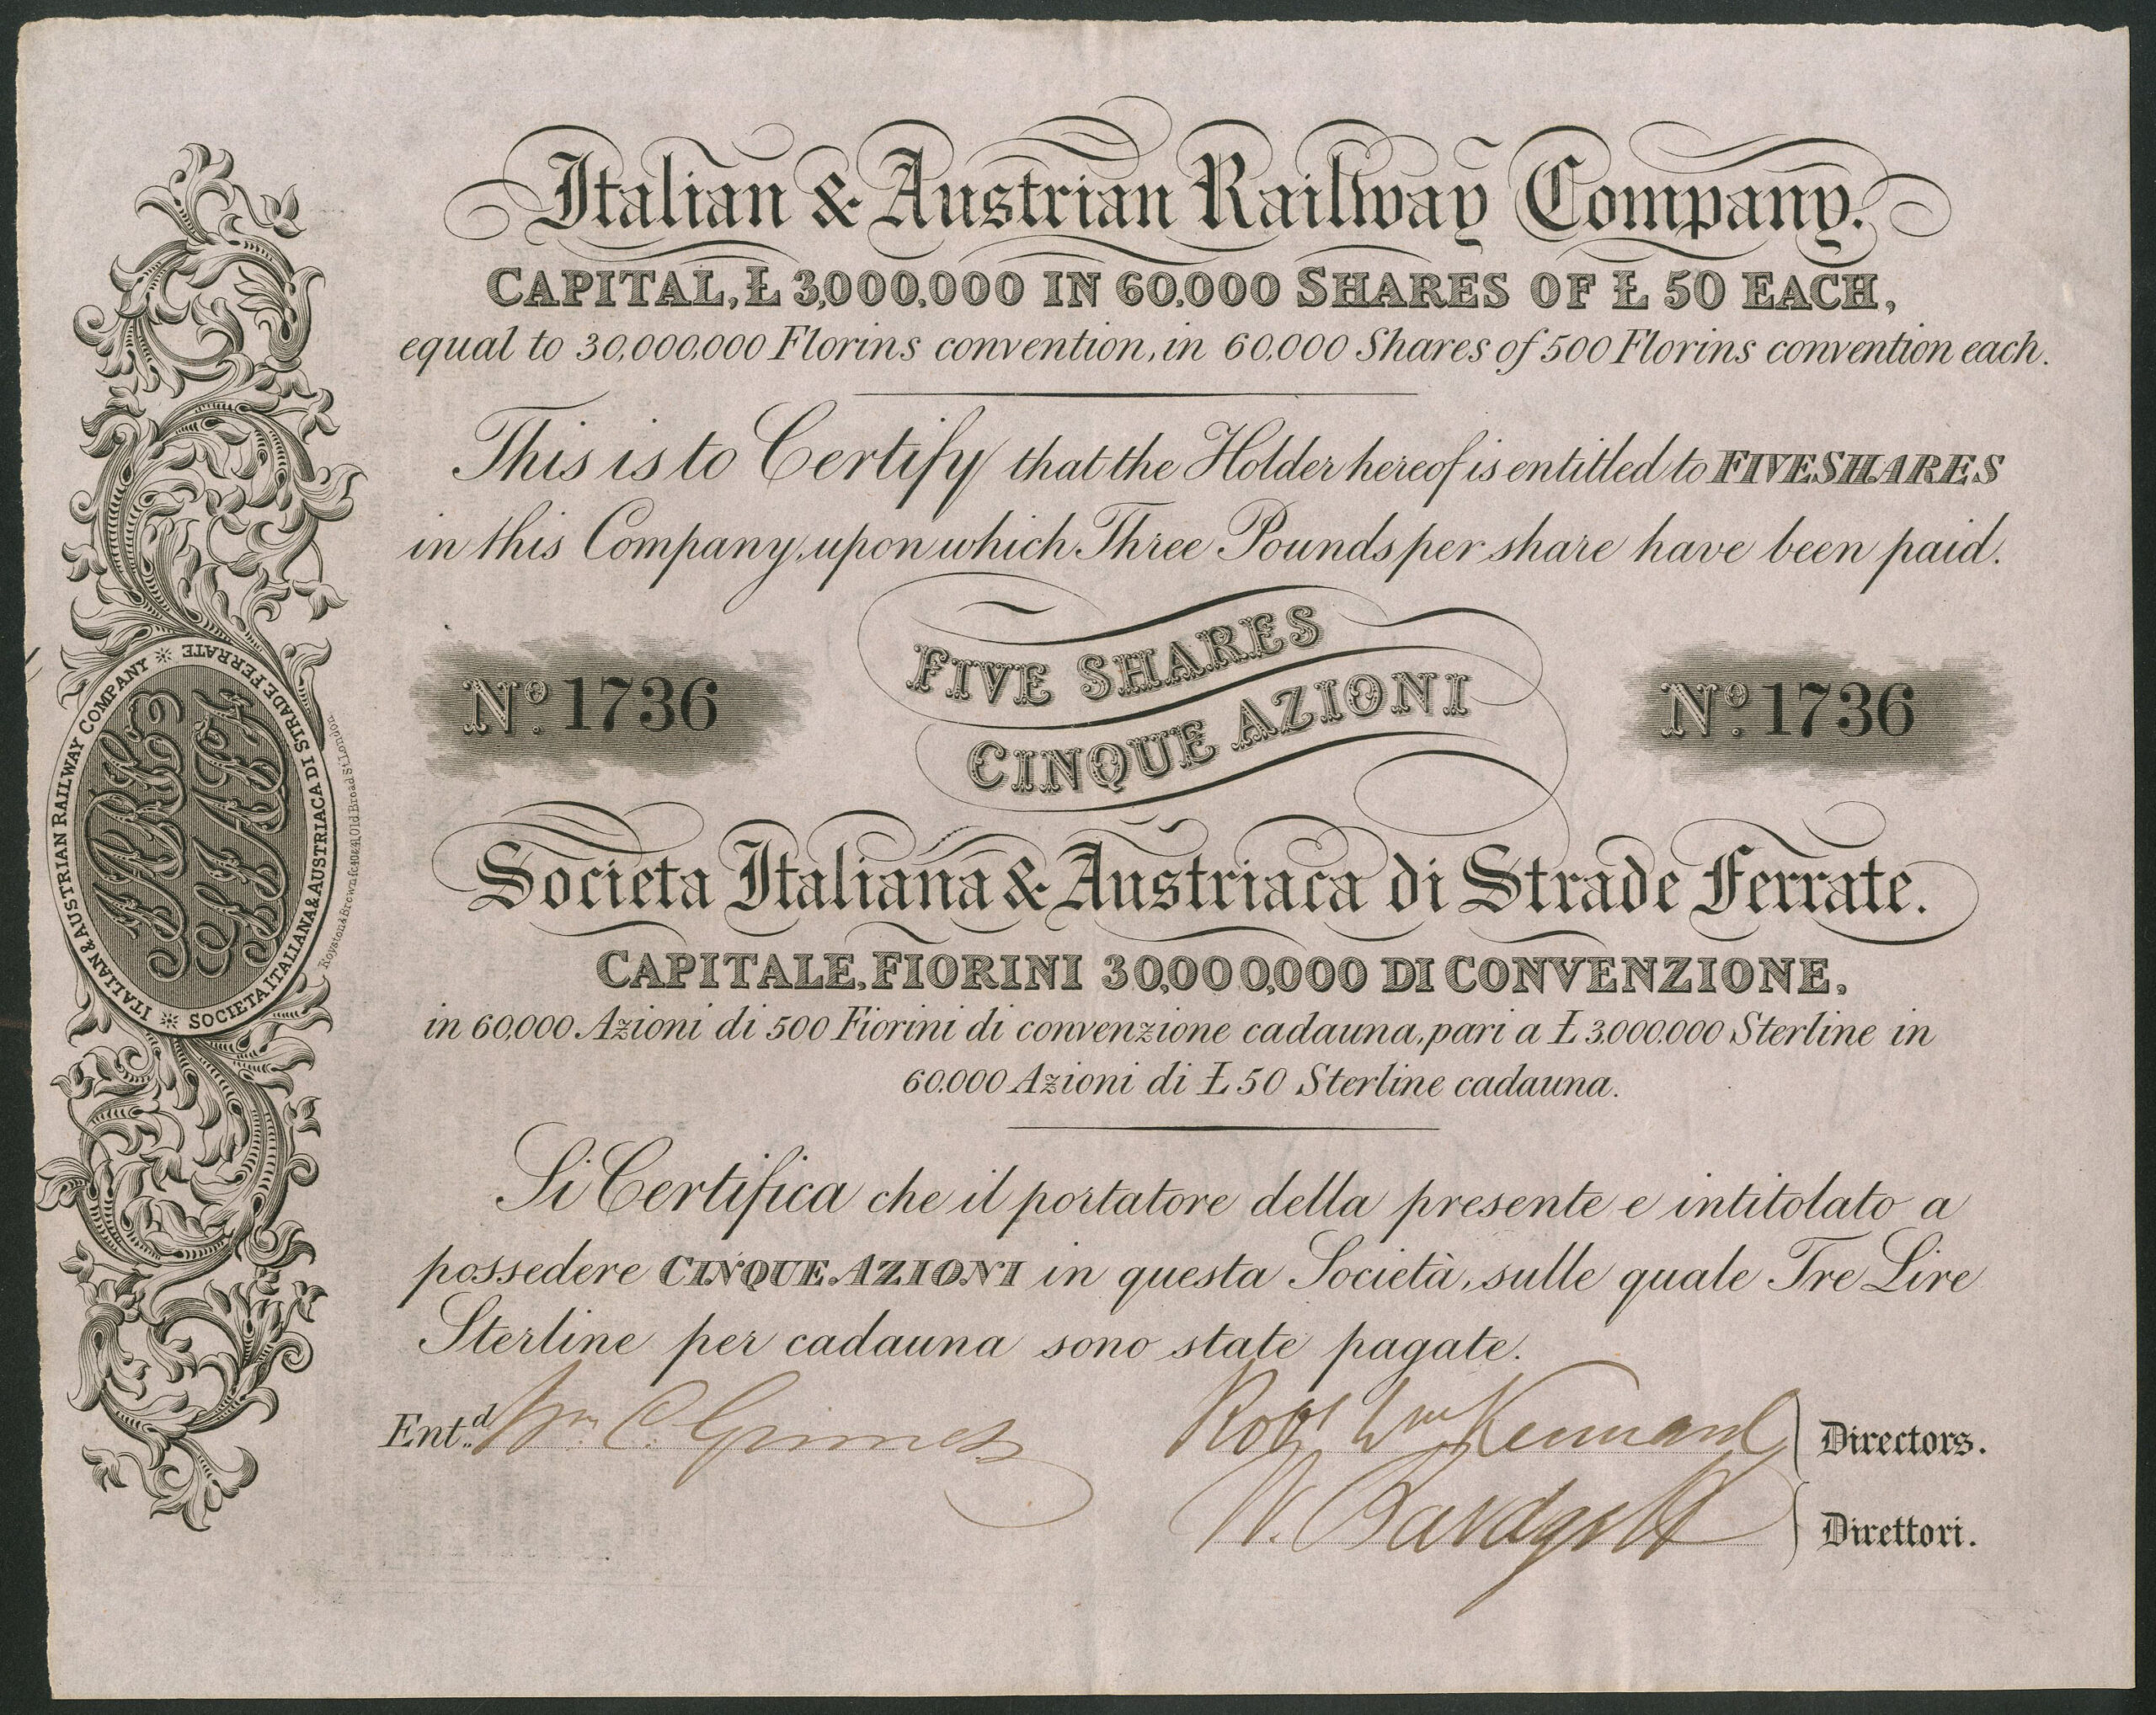 Italian & Austrian Railway Company.
CAPITAL, Ł 3,000,000 IN 60,000 SHARES OF Ł 50 EACH,
equal to 30,000,000 Florins convention, in 60,000 Shares of 500 Florins convention each.
This is to Certify that the Holder hereof is entitled to FIVE SHARES
in this Company, upon which Three Pounds per share have been paid.
FIVE SHARES
CINQUE AZIONI
No. 1736
No. 1736
Societa Italiana & Austriaca di Strade Ferrate.
CAPITALE, FIORINI 30,000,000 DI CONVENZIONE,
in 60,000 Azioni di 500 Fiorini di convenzione cadauna, pari a Ł 3,000,000 Sterline in
60,000 Azioni di Ł 50 Sterline cadauna.
Si Certifica che il portatore della presente e intitolato a
possedere CINQUE AZIONI in questa Società, sulle quale Tre Lire
Sterline per cadauna sono state pagate.
Ent.d Wm. C. Grimes
Robt Wm Kennard
Directors.
W. Bardgett
Direttori.
ITALIAN & AUSTRIAN RAILWAY COMPANY
SOCIETA ITALIANA & AUSTRIACA DI STRADE FERRATE
IARC
SIASF
Royston & Brown fc 40 & 41 Old Broad St. London